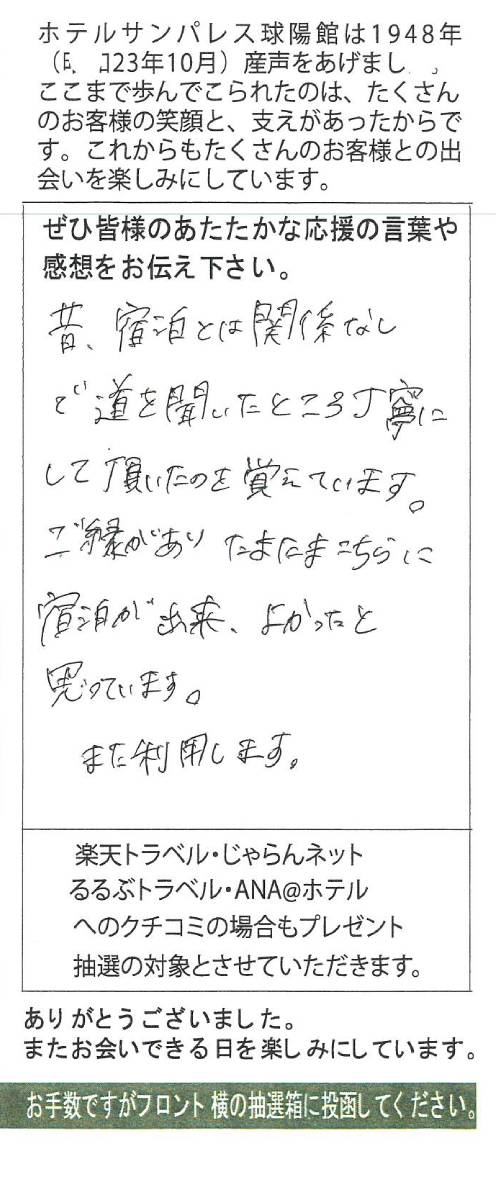 ホテルサンパレス球陽館は1948年
（ 23年10月）産声をあげまし
ここまで歩んでこられたのは、たくさん
のお客様の笑顔と、支えがあったからで
す。これからもたくさんのお客様との出
会いを楽しみにしています。
ぜひ皆様のあたたかな応援の言葉や
感想をお伝え下さい。
昔、宿泊とは関係なし
で道を聞いたところ丁寧に
して頂いたのを覚えています。
ご縁があり たまたまこちらに
宿泊が出来、よかったと
思っています。
また利用します。
楽天トラベル・じゃらんネット
るるぶトラベル・ANA@ホテル
へのクチコミの場合もプレゼント
抽選の対象とさせていただきます。
ありがとうございました。
またお会いできる日を楽しみにしています。
お手数ですがフロント横の抽選箱に投函してください。